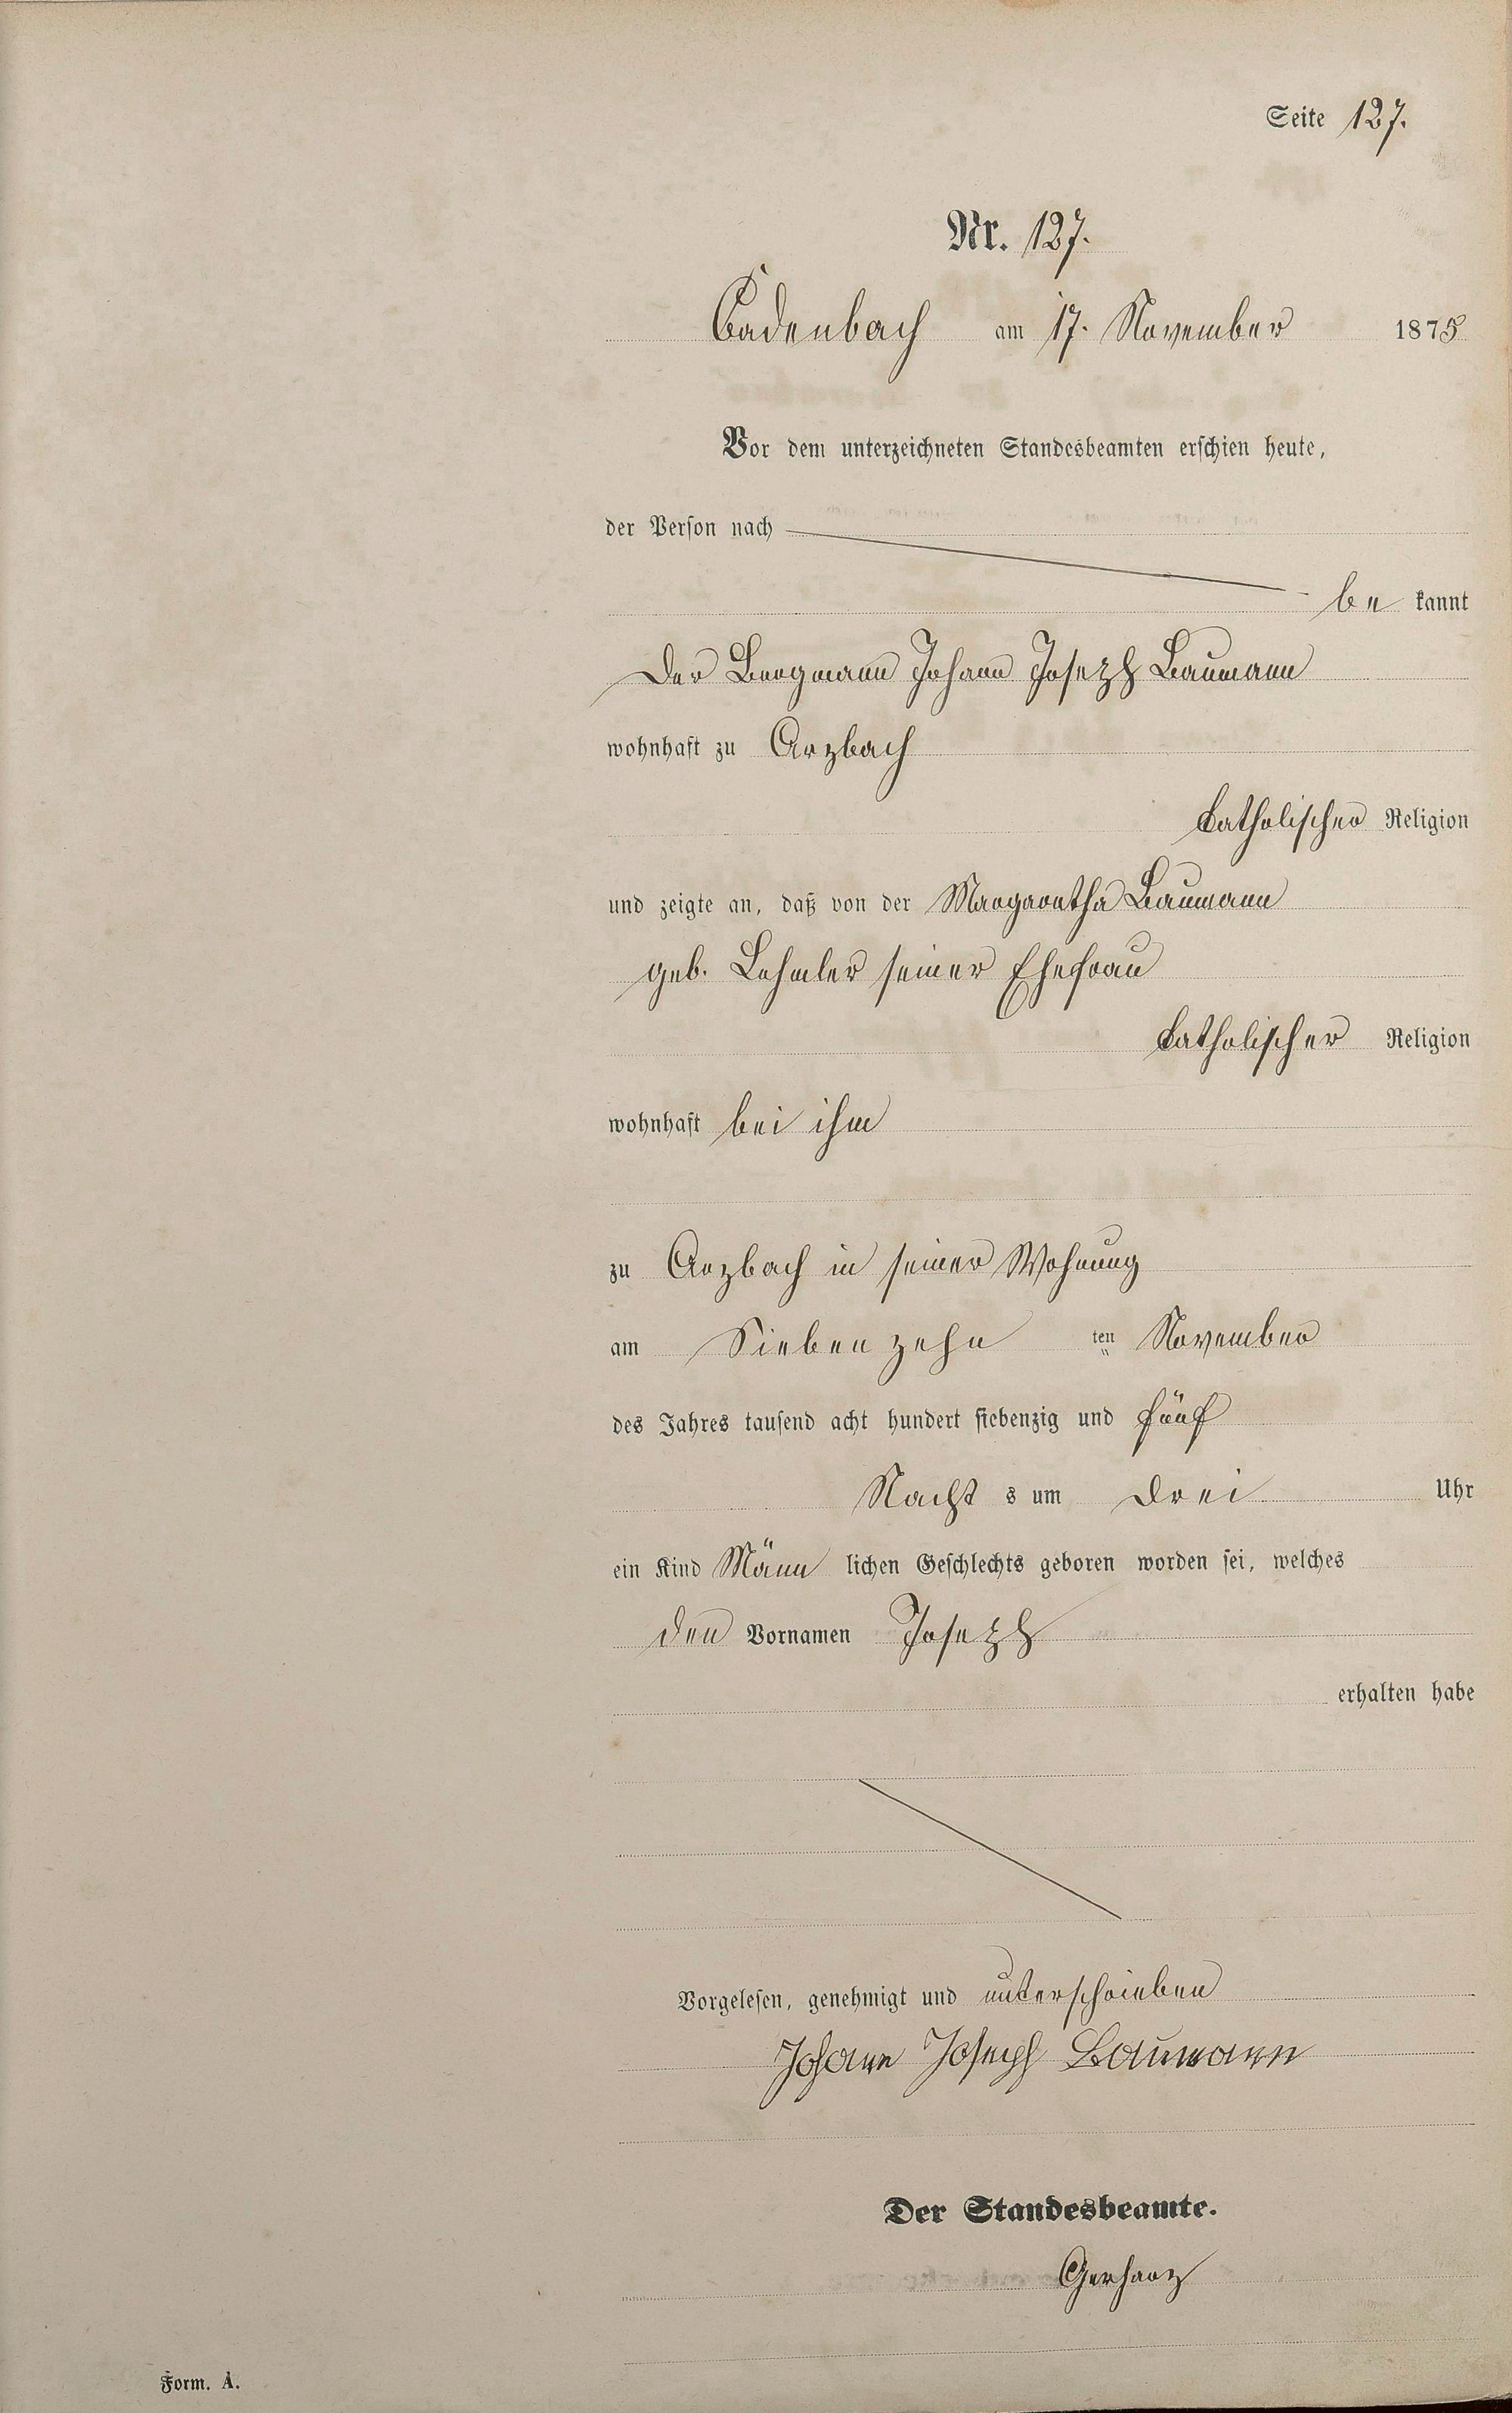 Seite 127.
Nr. 127.
Cadenbach am 17. November 1875
Vor dem unterzeichneten Standesbeamten erschien heute,
der Person nach
be kannt
Der Bergmann Johann Joseph Baumann
wohnhaft zu Arzbach
katholischer Religion
und zeigte an, daß von der Margaretha Baumann
geb. Lehmler seiner Ehefrau
katholischer Religion
wohnhaft bei ihm
zu Arzbach in seiner Wohnung
am Siebenzehn ten November
des Jahres tausend acht hundert siebenzig und fünf
Nacht s um Drei Uhr
ein Kind Männ lichen Geschlechts geboren worden sei, welches
den Vornamen Joseph
erhalten habe
Vorgelesen, genehmigt und unterschrieben
Johann Joseph Baumann
Der Standesbeamte.
Gerharz
Form. A.